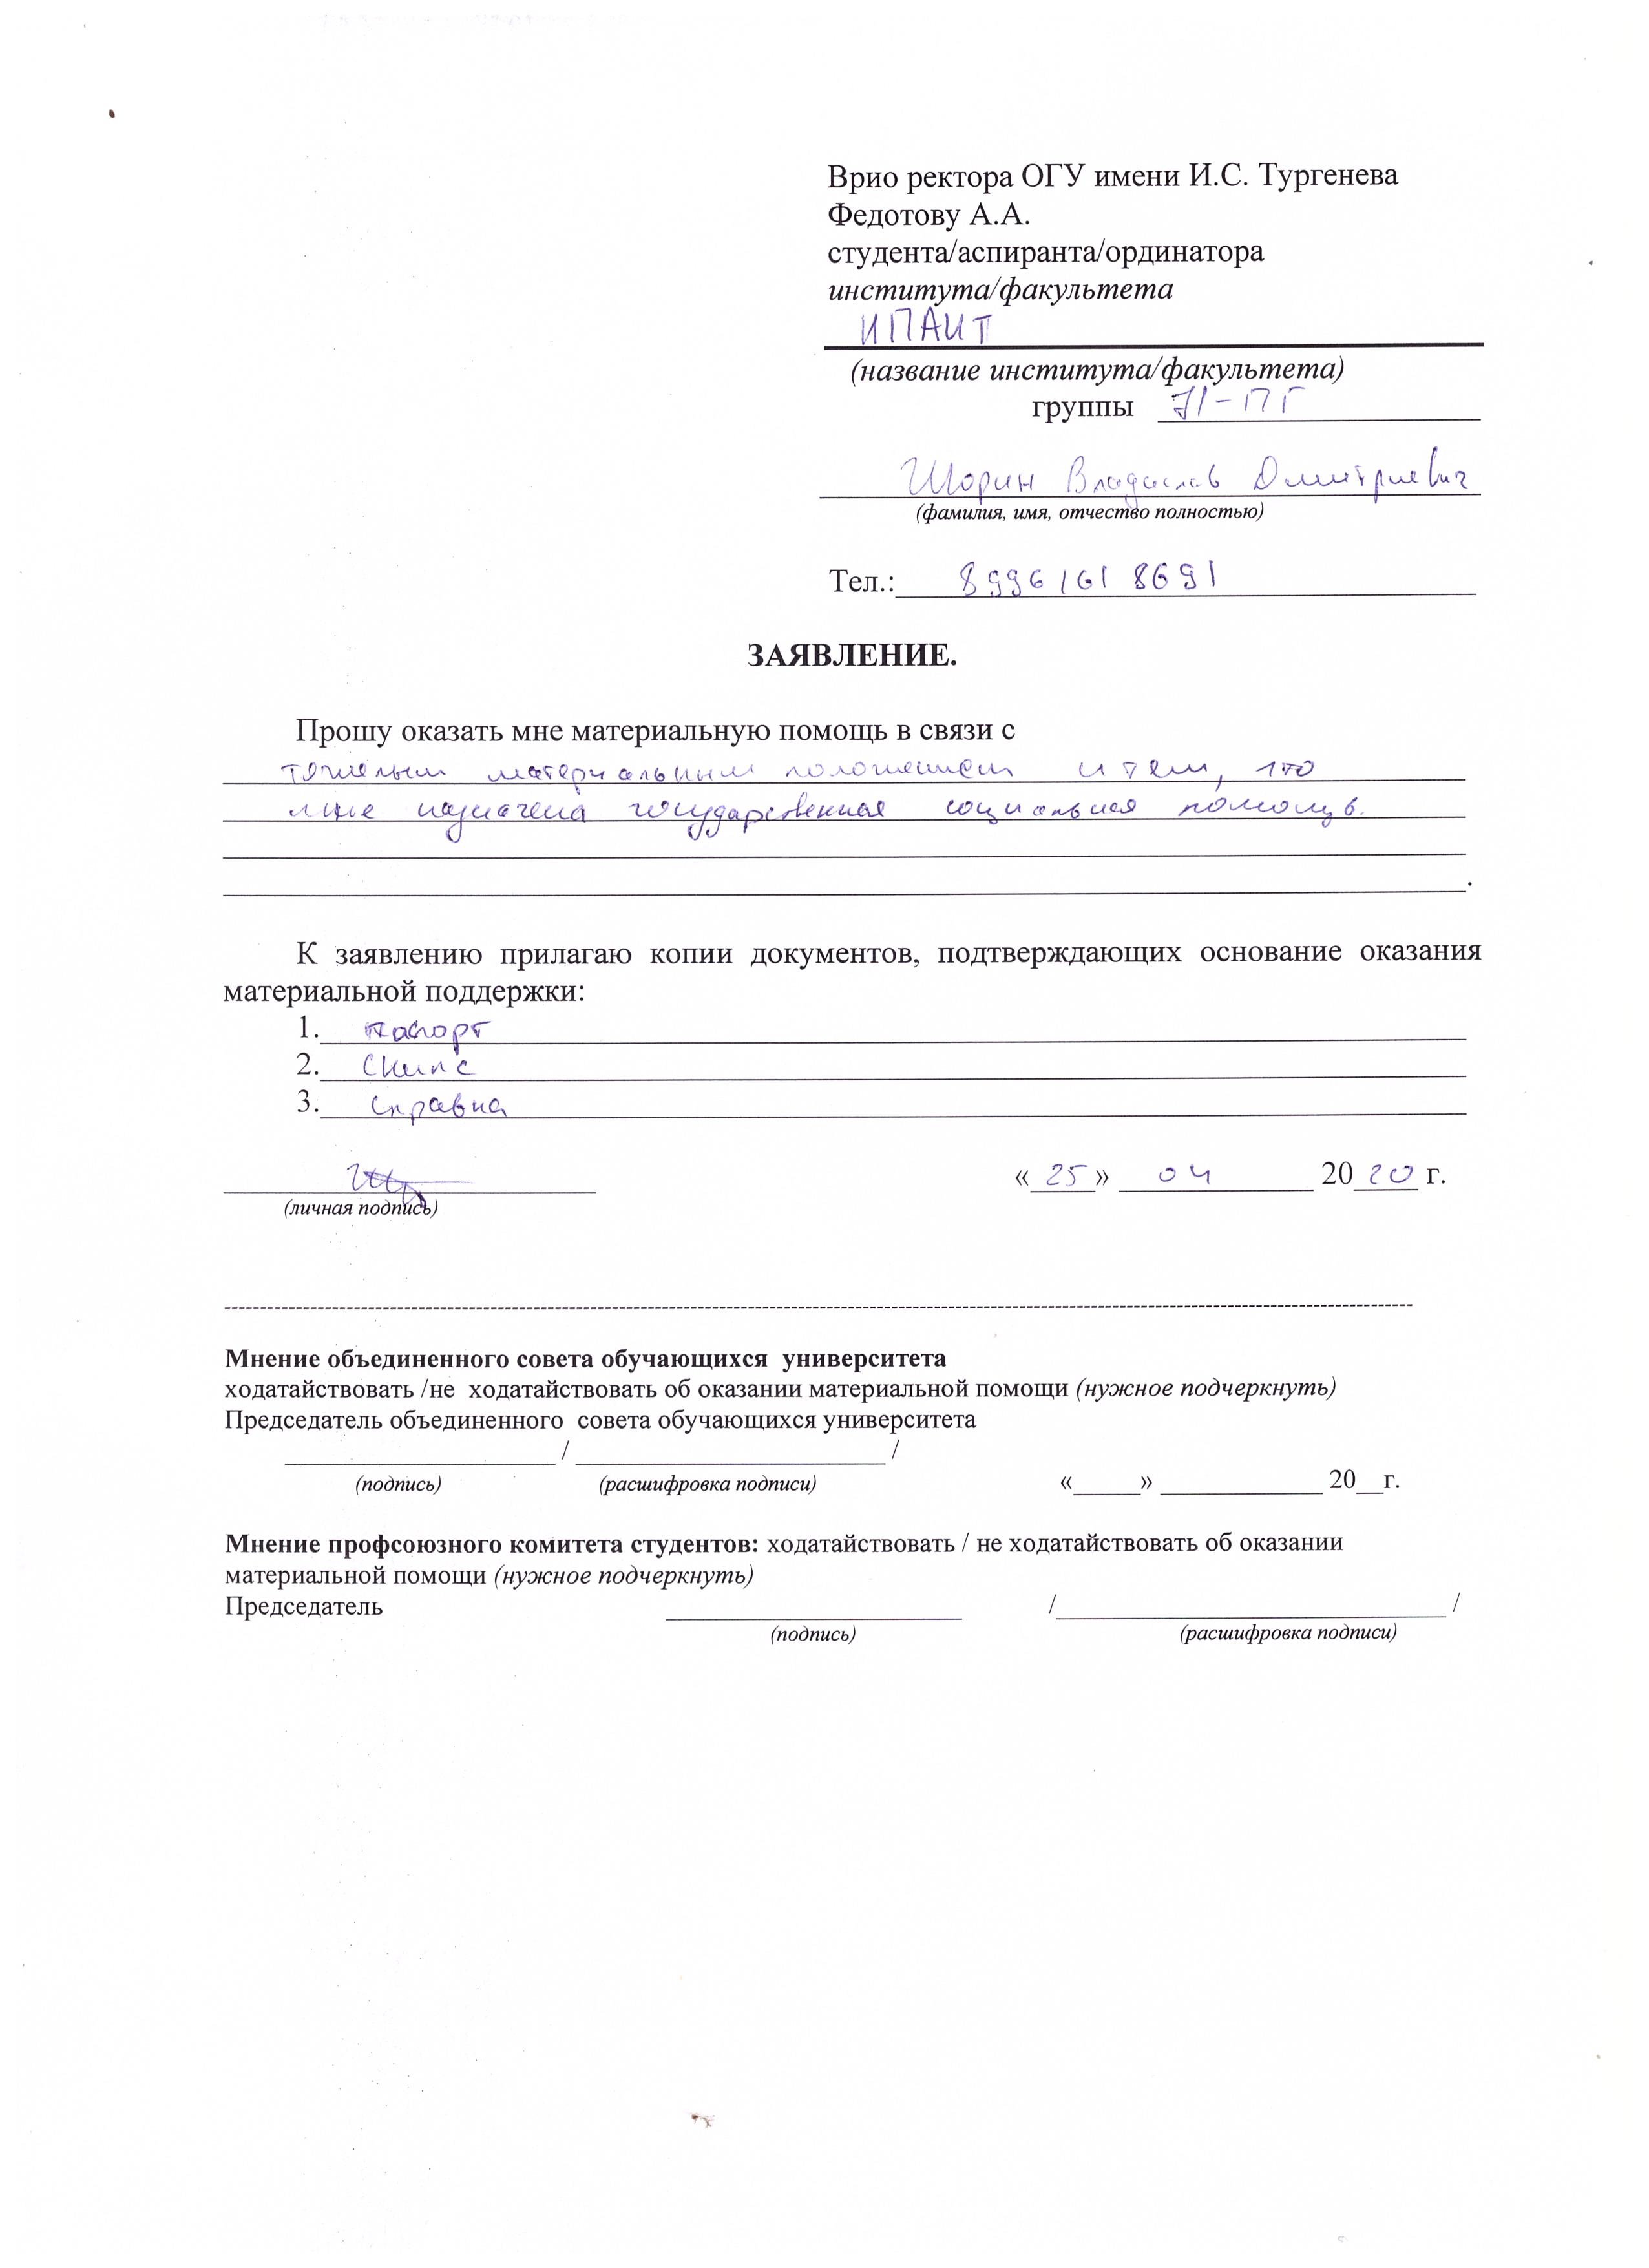 Врио ректора ОГУ имени И.С. Тургенева
Федотову А.А.
студента/аспиранта/ординатора
института/факультета
ИПАИТ
(название института/факультета)
группы 71-ПГ
Шорин Владислав Дмитриевич
(фамилия, имя, отчество полностью)
Тел.: 89961618691
ЗАЯВЛЕНИЕ.
Прошу оказать мне материальную помощь в связи с
тяжелым материальным положением и тем, что
мне назначена государственная социальная помощь.
К заявлению прилагаю копии документов, подтверждающих основание оказания
материальной поддержки:
1. паспорт
2. Снилс
3. Справка
«25» 04 2020 г.
(личная подпись)
Мнение объединенного совета обучающихся университета
ходатайствовать /не ходатайствовать об оказании материальной помощи (нужное подчеркнуть)
Председатель объединенного совета обучающихся университета
____________________ / _______________________ /
(подпись) (расшифровка подписи) «_____» ____________ 20__г.
Мнение профсоюзного комитета студентов: ходатайствовать / не ходатайствовать об оказании
материальной помощи (нужное подчеркнуть)
Председатель ______________________ /_____________________________ /
(подпись) (расшифровка подписи)